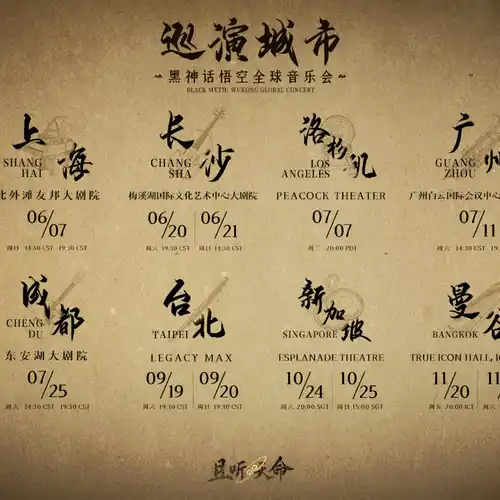 巡演城市
黑神话悟空全球音乐会
BLACK MYTH: WUKONG GLOBAL CONCERT
上海
SHANG
HAI
北外滩友邦大剧院
06/07
周日 14:30 CST 19:30 CST
长沙
CHANG
SHA
梅溪湖国际文化艺术中心大剧院
06/20 06/21
周六 19:30 CST 周日 14:30 CST
洛杉矶
LOS
ANGELES
PEACOCK THEATER
07/07
周二 20:00 PDT
广州
GUANG
ZHOU
广州白云国际会议中心
07/11
周六 14:30 CST
成都
CHENG
DU
东安湖大剧院
07/25
周六 14:30 CST 19:30 CST
台北
TAIPEI
LEGACY MAX
09/19 09/20
周六 19:30 CST 周日 19:30 CST
新加坡
SINGAPORE
ESPLANADE THEATRE
10/24 10/25
周六 20:00 SGT 周日 15:00 SGT
曼谷
BANGKOK
TRUE ICON HALL,
11/20 11/
周五 20:00 ICT
且听天命